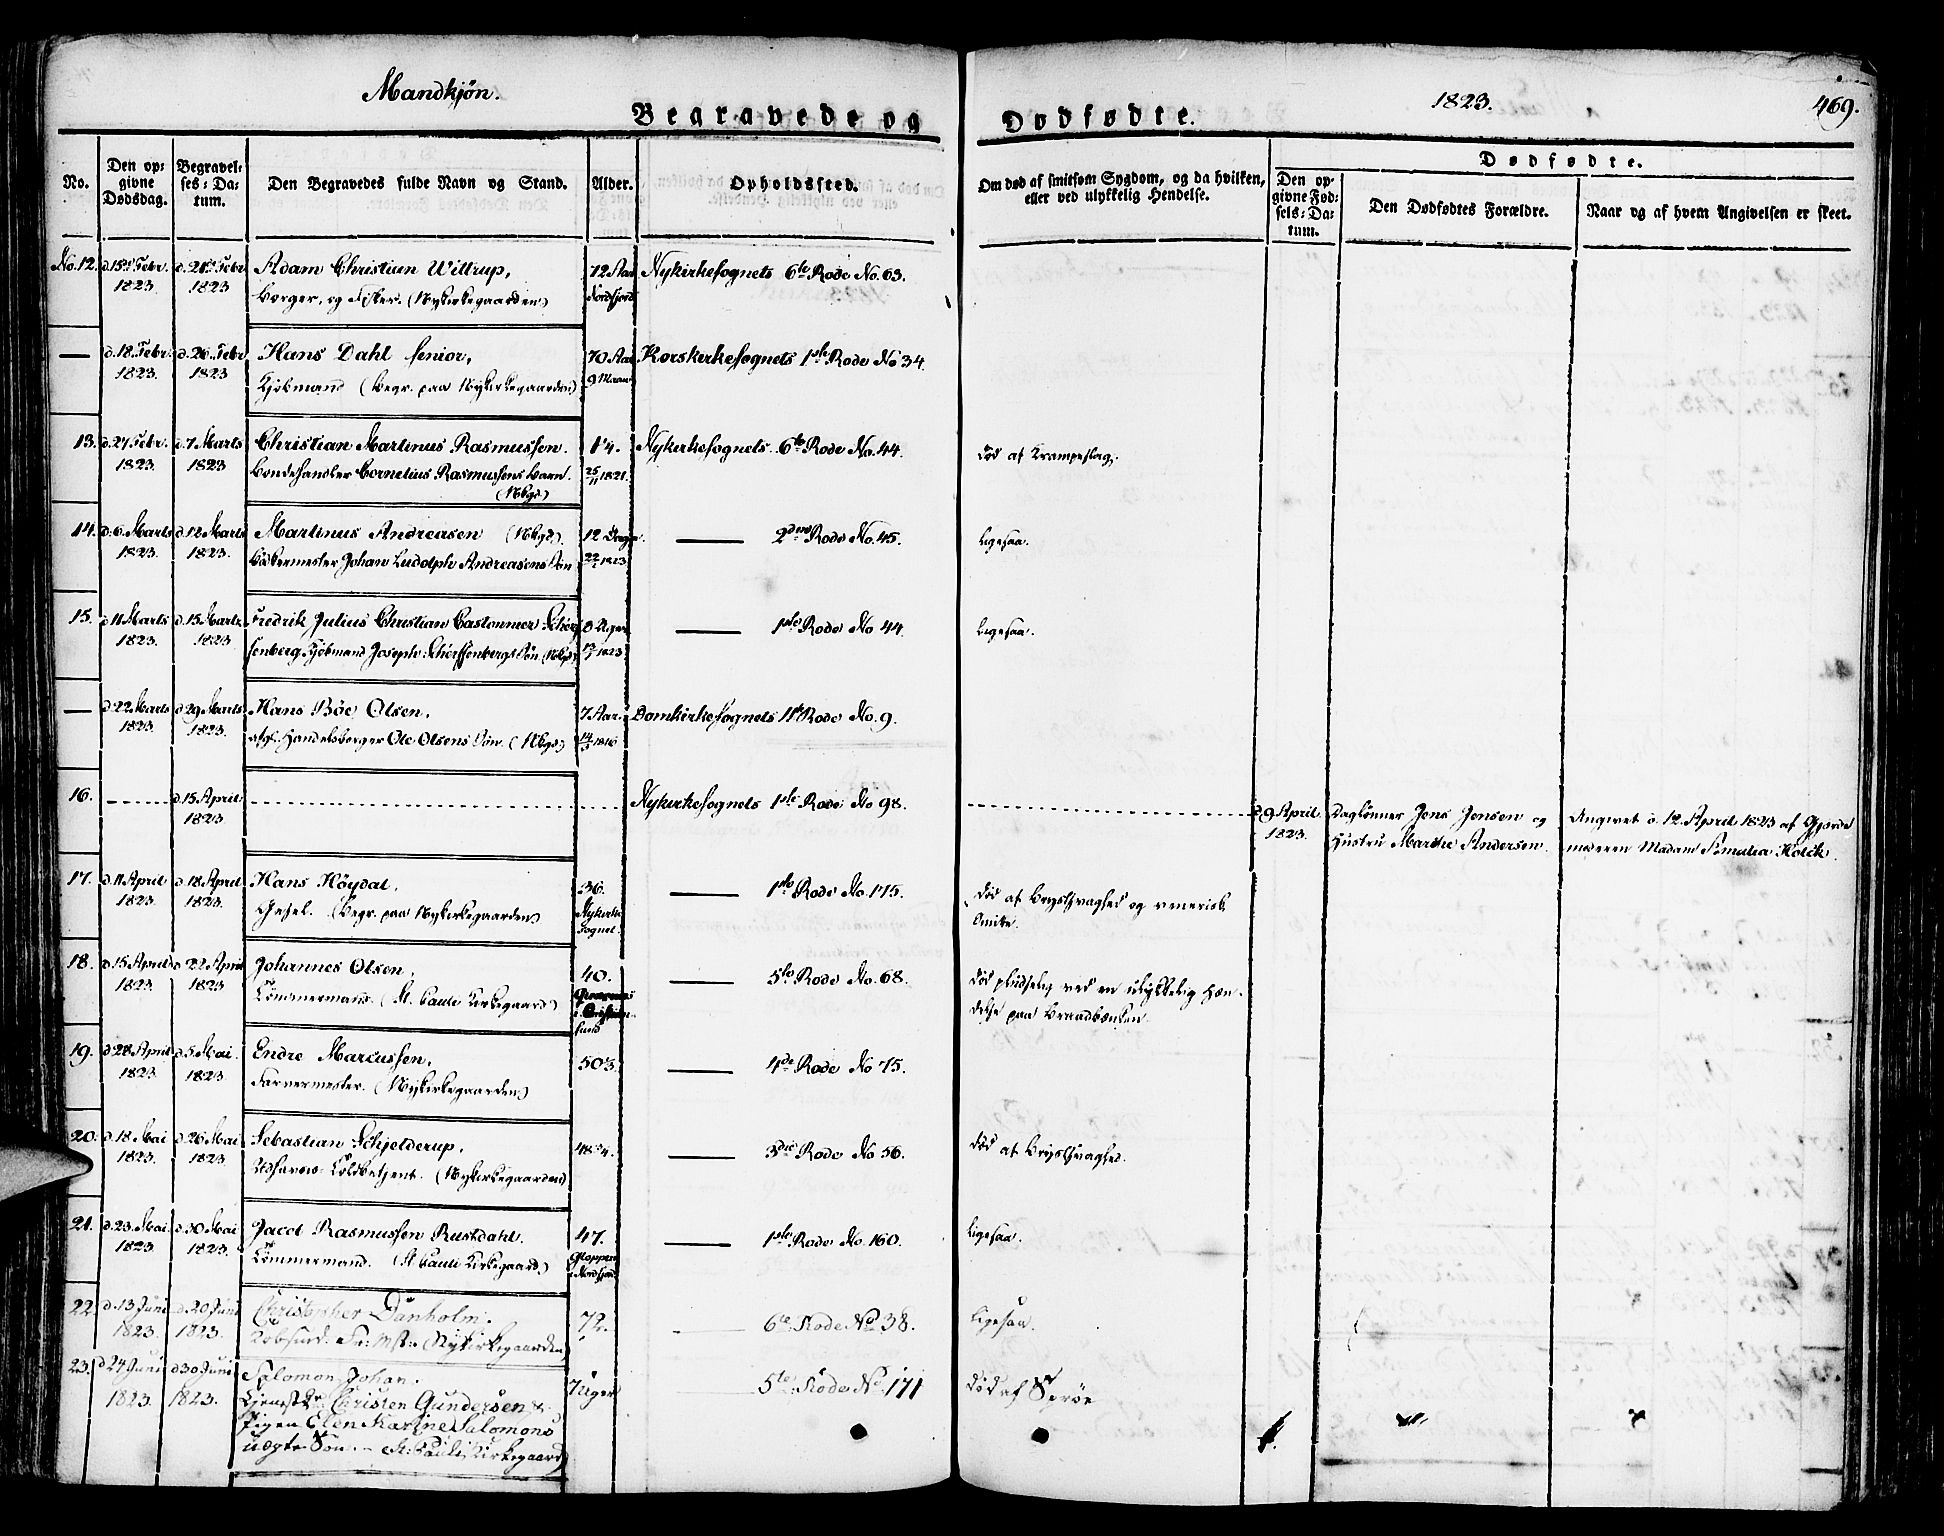 Mandkjøn.
Begravede og
Dødfødte.
1823.
469.
No.
Den opgivne Dødsdag.
Begravelses-Datum.
Den Begravedes fulde Navn og Stand.
Alder.
Opholdssted.
Om død af smitsom Sygdom, og da hvilken,
eller ved ulykkelig Hendelse.
Dødfødte.
Den opgivne Fødsels-Datum.
Den Dødfødtes Forældre.
Naar og af hvem Angivelsen er skeet.
No. 12. d. 15 Febr. d. 21 Febr. Adam Christian Wittrup, 72 Aar Nykirkesognets 6te Rode No. 63.
1823 1823 Borger, og Fisker. (Nykirkegaarden)
— d. 18 Febr. d. 26 Febr. Hans Dahl senior, 70 Aar Korskirkesognets 1ste Rode No 34.
1823. 1823 Kjøbmand (Begr. paa Nykirkegaarden) 9 Maan
13. d. 27 Febr. d. 7 Marts Christian Martinus Rasmussen. 1¼. Nykirkesognets 6te Rode No. 44.
1823. 1823 Bondehandler Cornelius Rasmussens Barn. 25/11 1821. Død af Krampeslag.
(Nkgd)
14. d. 6 Marts d. 12 Marts Martinus Andreasen (Nkgd). 12 Dage — 2den Rode No. 45.
1823. 1823. Bødkermester Johan Ludolph Andreasens Søn 1823 Ligesaa.
15. d. 11 Marts d. 15 Marts Fredrik Julius Christian Castonnier Scherf 8 Uger — 1ste Rode No 44.
1823. 1823. senberg Kjøbmand Joseph Scherffenbergs Søn (Nkgd) 1823 Ligesaa.
— d. 22 Marts d. 29 Marts Hans Böe Olsen. 7 Aar. Domkirkesognets 11te Rode No. 9.
1823. 1823. afg. Handelsborger Ole Olsens Søn. (Nkgd) 1816
16. d. 15 April Nykirkesognets 1ste Rode No 98. d. 9 April Daglønner Jens Jensen og Angivet d. 12 April 1823 af Gjorde
1823. 1823. Hustru Marthe Andersen. moderen Madam
17. d. 11 April d. 18 April Hans Höydal. 36. — 1ste Rode No. 175. Død af Brystsvaghed og venerisk
1823. 1823. Gesel. (Begr. paa Nykirkegaarden) Nykirke Smitte.
sognet.
18. d. 15 April d. 22 April Johannes Olsen. 40. — 5te Rode No. 68. Død pludselig ved en ulykkelig Hæn-
1823. 1823 Tömmermand. (St. Pauli Kirkegaard) delse paa Braadbænken.
19. d. 28 April d. 5 Mai. Endre Marcussen. 50¾. — 4de Rode No 75.
1823. 1823. Farvermester. (Nykirkegaarden)
20. d. 18 Mai d. 26 Mai Sebastian Schjelderup, 48¾. — 3die Rode No 56. Død af Brystsvaghed.
1823. 1823. Toldbetjent. (Nykirkegaarden)
21. d. 23 Mai d. 30 Mai Jacob Rasmussen Rustdahl. 47. — 1ste Rode No. 160. Ligesaa.
1823. 1823. Tömmermand. (St Pauli Kirkegaard) Gloppen
i Nordfjord
22. d. 13 Juni d. 20 Juni Christopher Danholm. 72. — 6te Rode No 38. Ligesaa.
1823. 1823. (Nykirkegaarden)
23. d 24 Juni d 30 Juni Salomon Johan. 7 Uger 5te Rode No 171 Død af Spröe
1823. 1823. Tjenestkr. Christen Gundersen &
Pigen Elen Karine Salomons
uægte Søn. — St: Pauli Kirkegaard)